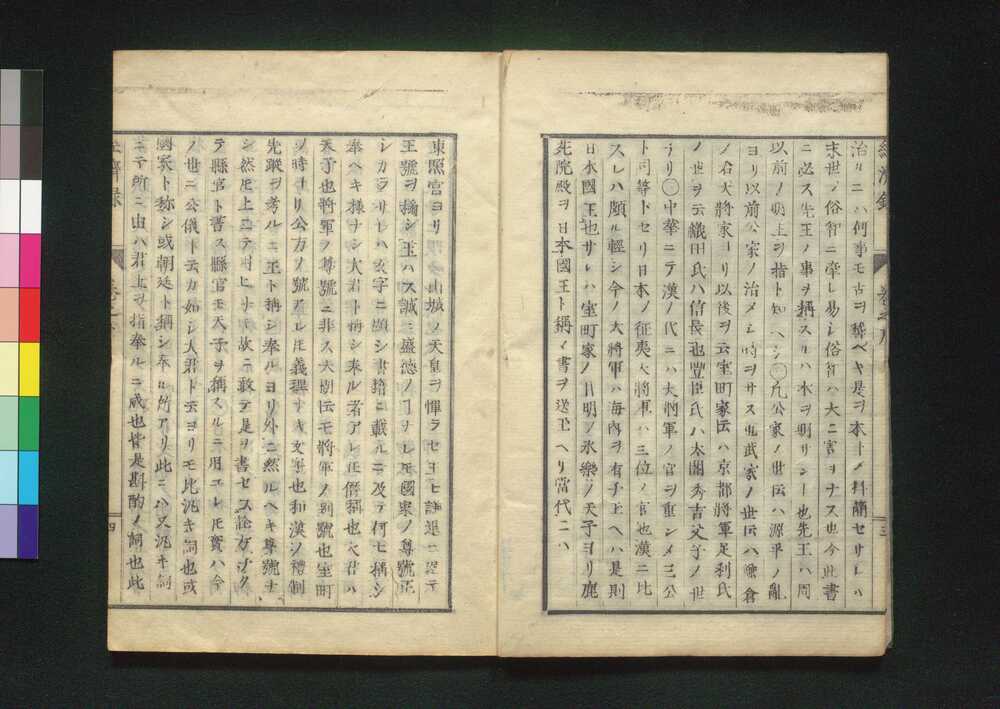 治ルニハ何事モ古ヲ稽ベキ是ヲ本トメ料簡セサレハ
末世ノ俗習ニ牽レ易シ俗習ハ大ニ害ヲナス也今此書
ニ必ス先王ノ事ヲ稱スルハ本ヲ明ナリシー也先王ハ周
以前ノ明王ヲ指ト知ヘシ〇凡公家ノ世伝ハ源平ノ亂
ヨリ以前公家ノ治メシ時ヲサス也武家ノ世伝ハ鎌倉
ノ右大將家ヨリ以後ヲ云室町家伝ハ京都將軍足利氏
ノ世ヲ云織田氏ハ信長也豐臣氏ハ太閤秀吉父子ノ世
ナリ〇中華ニテ漢ノ代ニハ大將軍ノ官ヲ重シメ三公
ト同等トセリ日本ノ征夷大將軍ハ三位ノ官也漢ニ比
スレハ頗ル輕シ今ノ大將軍ハ海内ヲ有チ玉ヘハ是則
日本國王也サレハ室町家ノ日明ノ永樂ノ天子ヨリ鹿
苑院殿ヲ日本國王ト稱メ書ヲ送玉ヘリ當代ニハ
經濟錄
卷之
三
東照宮ヨリ山城ノ天皇ヲ憚ラセ玉ヒ謙退ニ
王號ヲ稱シ玉ハス誠ニ盛德ノ丁ナレ𪜈國家ノ尊號正
シカラサレハ文字ニ顯シ書籍ニ載ルニ及テ何ト稱シ
奉ヘキ樣ナシ大君ト稱シ來ル者アレ𪜈僭稱也大君ハ
天子也將軍ノ尊號ニ非ス大樹伝モ將軍ノ別號也室町
ノ時ヨリ公方ノ號アレ𪜈義理ナキ文字也和漢ノ禮制
先蹤ヲ考ルニ王ト稱シ奉ルヨリ外ニ然ルヘキ尊號ナ
シ然𪜈上ニテ
テ縣官ト書ス縣官モ天子ヲ稱スルニ用ユレ𪜈實ハ今
ノ世ニ公儀ト云カ如シ大君ト云ヨリモ泛キ詞也或
國家ト稱シ或朝廷ト稱シ奉ル所アリ此ニハ又泛キ詞
ニテ所ニ由ハ君上ヲ指奉ルニ成也皆是斟酌ノ詞也此
四